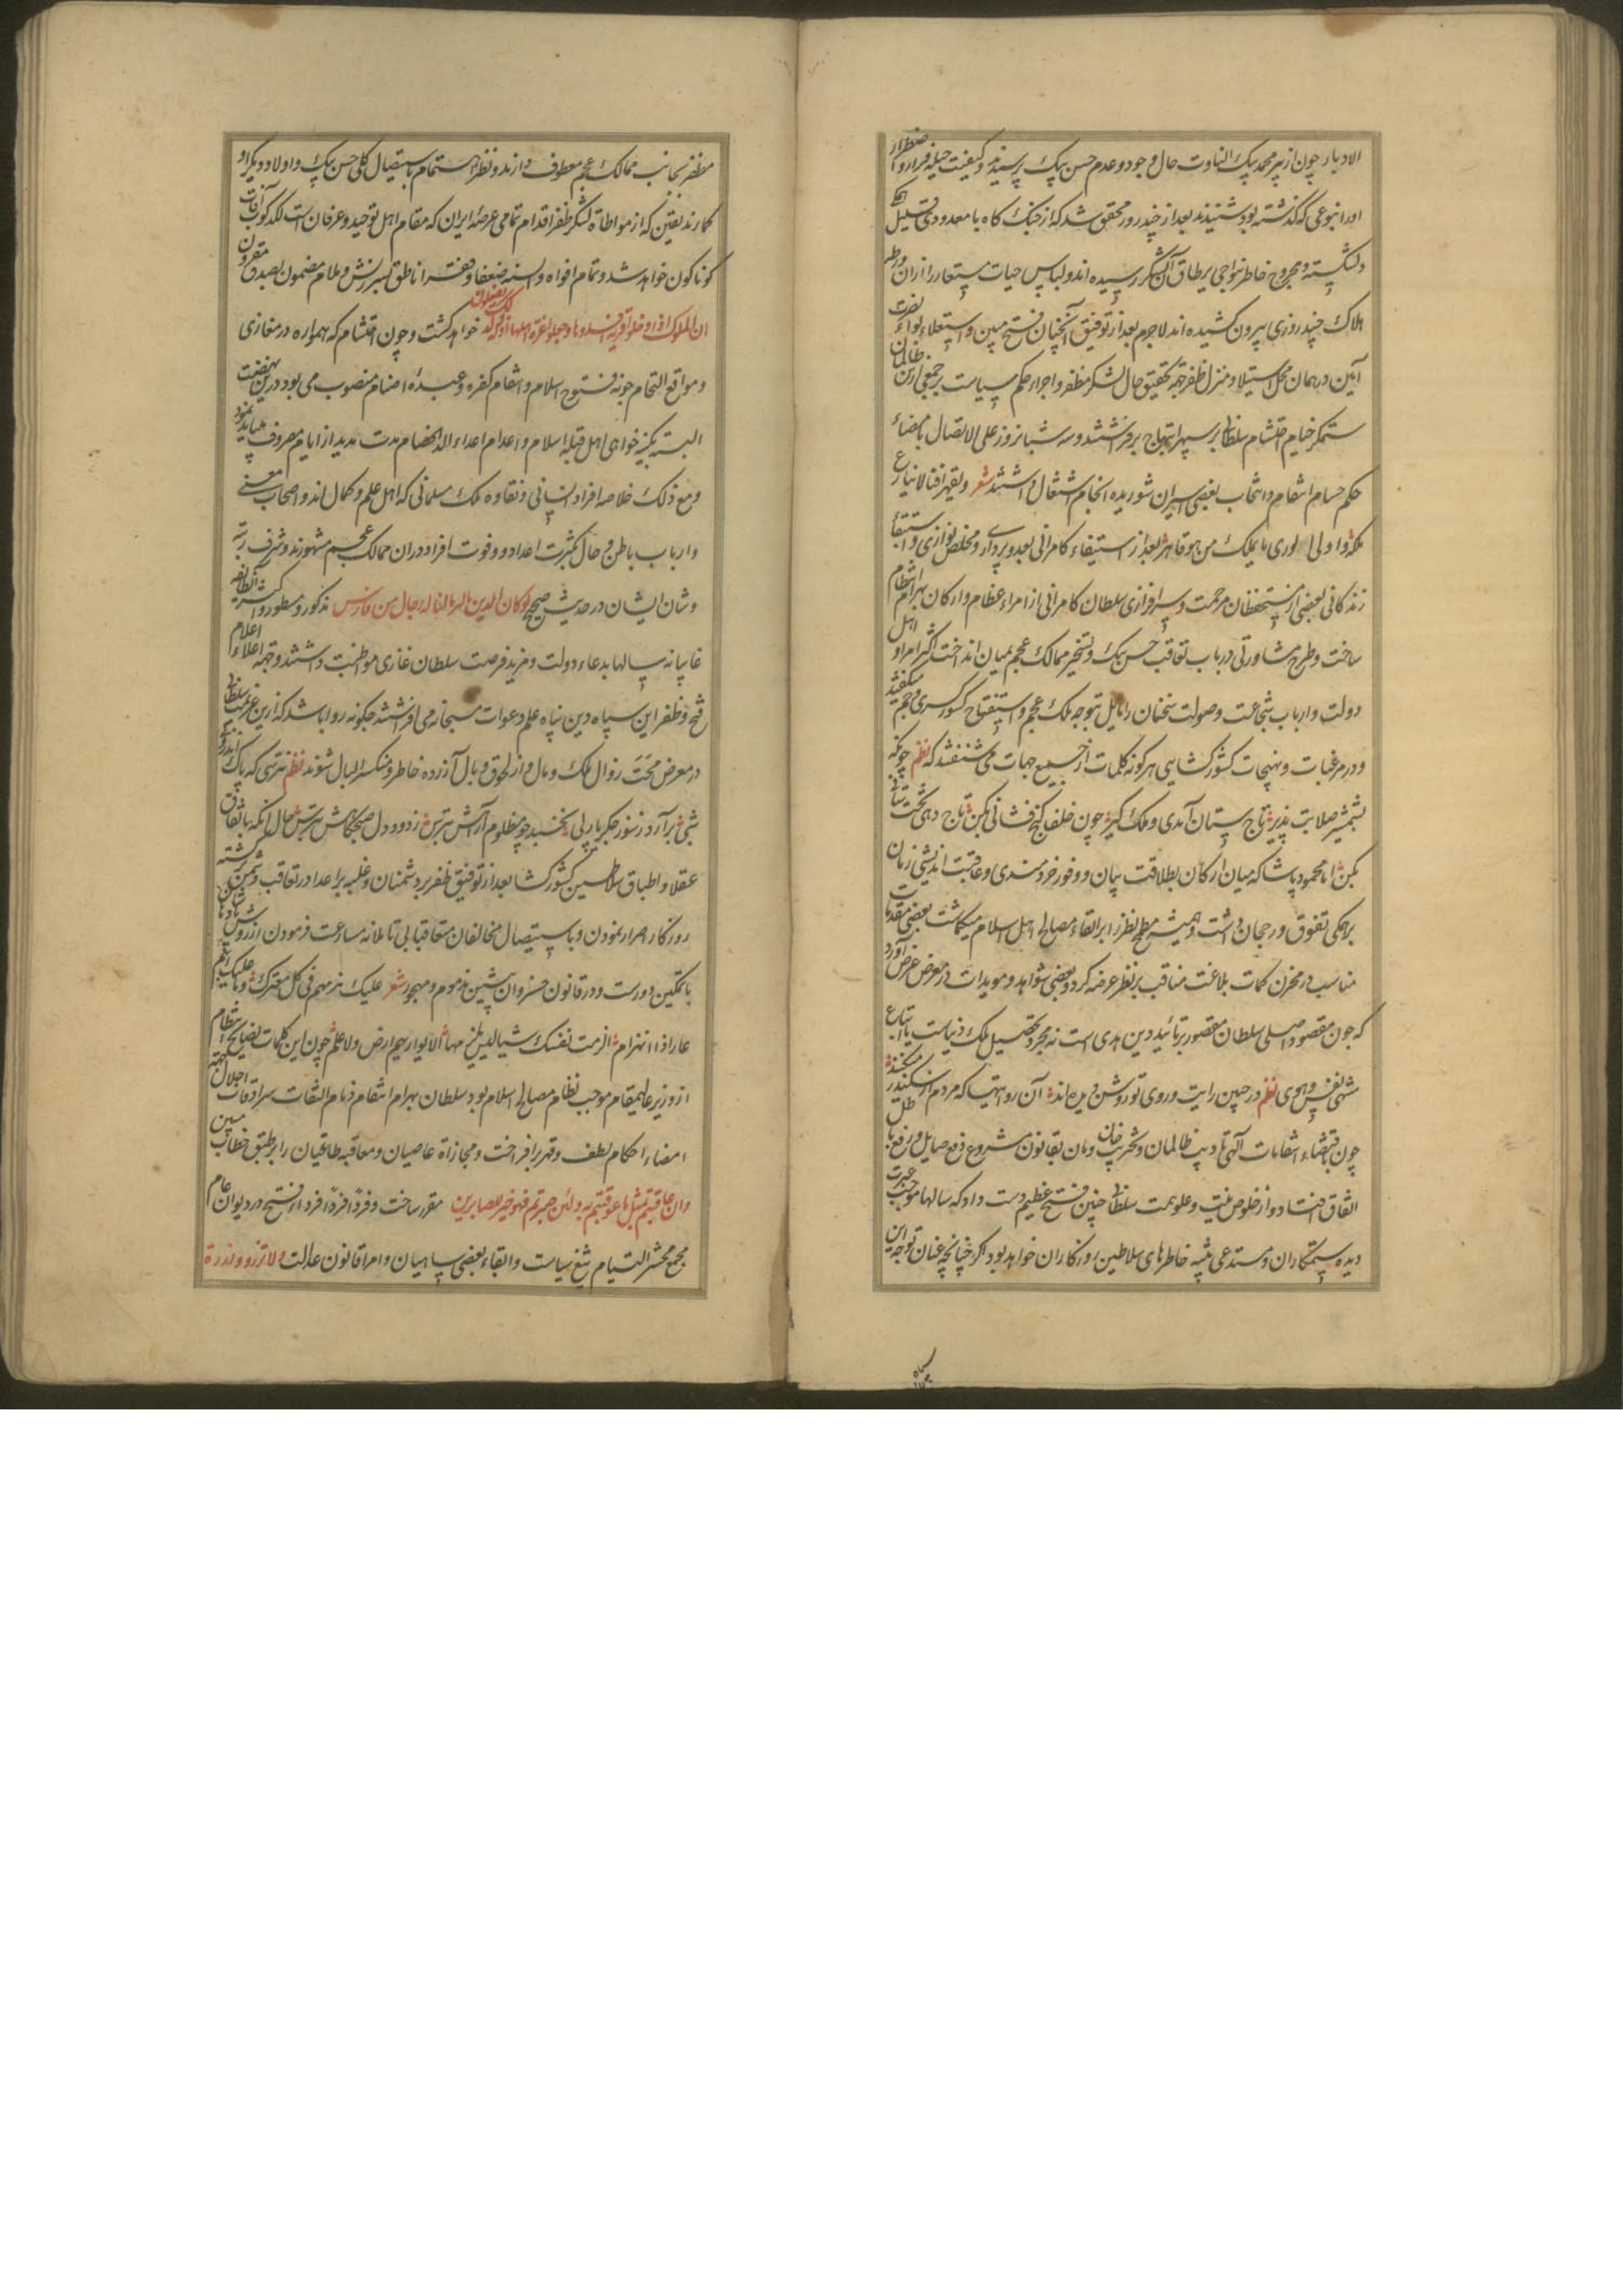 الادبار چون از پیر محمد بیک التاوت حال وجود و عدم حسن بیک پرسیدند و کیفیت حیله و فرار و اضطرار
او را بنوعی که گذشته بود شنیدند بعد از چند روز محقق شد که از جنک کاه با معدودی قلیل
دلشکسته و مجروح خاطر بنواحی آن لشکر رسیده اند و لباس حیات مستعار را از آن ورطه
هلاک چند روزی بیرون کشیده اند لاجرم بعد از توفیق آنچنان فتح مبین و استعلاء لواء نصرت
آیین در همان محل استیلا و منزل ظفر جهة تحقیق حال لشکر مظفر و اجراء حکم سیاست بر جمعی از آن ظالمان
ستمکر خیام احتشام سلطانی بر سپهر ابتهاج برافراشتند و سه شبانروز علی الاتصال بامضاء
حکم حسام انتقام و انتخاب بعضی اسیران شوریده انجام اشتغال داشتند شعر
بعد از استیفاء کامرانی بعد و پردازی و مخلص نوازی و استبقاء
زندکانی بعضی از مستحفظان مرحمت و سرافرازی سلطان کامرانی از امراء عظام و ارکان بهرام انتظام
ساخت و طرح مشاورتی در باب تعاقب حسن بیک و تسخیر ممالک عجم بمیان انداخت اکثر امرا و اهل
دولت و ارباب شجاعت و صولت سخنان را مایل بتوجه ملک عجم و استفتاح کشور کسری و جم میکفتند
و در مرغبات و مهیجات کشورکشایی هر کونه کلمات از جمیع جهات می شنفتند که نظم چو بکه
بشمشیر صلابت پذیر تاج ستان آمدی و ملک کیر چون خلف کنج فشانی بکن تاج دهی تخت ستانی
بکن اما محمود پاشا که میان ارکان بطلاقت بیان و وفور خردمندی و عاقبت اندیشی زمان
بر همکی تفوق و رجحان داشت و همیشه مطمح نظر را بر ابقاء مصالح اهل اسلام میکماشت بعضی مقدمات
مناسب در مخزن کلمات بلاغت مناقب بر نظر عرضه کرد و بعضی شواهد و مویدات در معرض عرض آورد
که چون مقصود اصلی سلطان مقصور بر تائید دین هدی است نه مجرد تحصیل ملک دنیاست یا اتباع
مشتهی نفس و هوی نظم در جبین رایت و روی تو روشن دیده اند آن روایتها که مردم از سکندر میکنند
چون باقتضاء انتقامات آلهی تادیب ظالمان و تخریب خان و مان بقانون مشروع دفع صایل و رفع باطل
اتفاق افتاد و از خلوص نیت و علو همت سلطانی چنین فتح عظیم دست داد که سالها موجب عبرت
دیده ستمکاران و مستدعی تنبیه خاطرهای سلاطین روزکاران خواهد بود اکر چنانچه عنان توجه این
سپاه
مظفر بجانب ممالک عجم معطوف دارند و نظر اهتمام باستیصال کلی حسن بیک و اولاد و دیکر او
کمارند یقین که از مواطاة لشکر ظفر اقدام تمامی عرصۀ ایران که مقام اهل توحید و عرفان است لکدکوب آفات
کوناکون خواهد شد و تمام افواه و السنه ضعفا و فقرا ناطق بسرزنش و ملام مضمون بصدق مقرون
ان الملوک اذا دخلوا قریة افسدوها و جعلوا اعزة اهلها اذلة و کذلک یفعلون خواهد کشت و چون احتشام که همواره در مغازی
و مواقع التحام جهة فتوح اسلام و انتقام کفره و عبدۀ اصنام منصوب می بود درین نهضت
البته بکینه خواهی اهل قبله اسلام و اعدام اعداء الد الخصام مدت مدید از ایام مصروف میباید نمود
و مع ذلک خلاصه افراد انسانی و نقاوه ملک مسلمانی که اهل علم و کمال اند و اصحاب معنی
و ارباب باطن و حال بکثرت اعداد و وفوت افراد در آن ممالک عجم مشهورند و شرف رتبه
و شان ایشان در حدیث صحیح لو کان الدین بالثریا لناله رجال من فارس مذکور و مسطور و اکثر آن طایفه
غایبانه سالها بدعاء دولت و مزید فرصت سلطان غازی مواظبت داشتند و جهة اعلاء اعلام
فتح و ظفر این سپاه دین پناه علم دعوات مسبحانه می افراشتند چکونه روا باشد که ازین عزیمت سلطانی
در معرض محنت زوال ملک و مال و از لحوق وبال آزرده خاطر و منکسر البال شوند نظم نترسی که پاک اندرونی
شبی برآرد ز سوز جکر یا ربی نخسبد چو مظلوم از آهش بترس ز دود دل صبحکاهش بترس حال آنکه باتفاق
عقلا و اطباق سلاطین کشورکشا بعد از توفیق ظفر بر دشمنان و غلبه بر اعدا در تعاقب دشمن برکشته
روزکار اصرار نمودن و باستیصال مخالفان متعاقبا بی تاملانه مسارعت فرمودن از روش پادشاهان
با تمکین دورست و در قانون خسروان پیشین مذموم و مهجور شعر علیک هزمهم فی کل معترک و ما علیک بهم
عار اذا انهزموا الزمت نفسک شیئا لیس یلزمها الا یواریهم ارض و لا علم چون این کلمات نصایح انتظام
از وزیر عالیمقام موجب نظام مصالح اسلام بود سلطان بهرام انتقام زمام التفات سرادقات اجلال بجهة
امضاء احکام لطف و قهر برافراخت و مجازاة عاصیان و معاقبه طاغیان را بر طبق خطاب مبین
و ان عاقبتم فعاقبوا بمثل ما عوقبتم به و لئن صبرتم لهو خیر للصابرین مقرر ساخت و فردا فردا افراد اسرا فتح در دیوان عام
مجمع محشر التیام بتیغ سیاست و ابقاء بعضی سپاهیان و امرا قانون عدالت و لا تزر وازرة